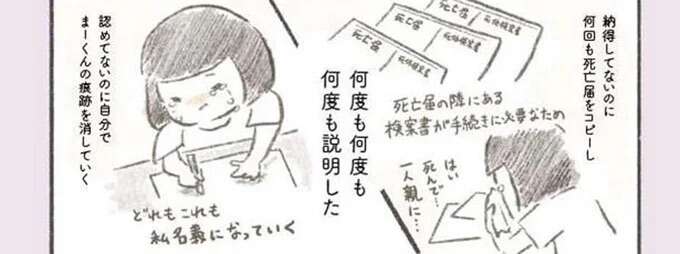 納得してないのに
何回も死亡届をコピーし
死亡届
死亡届
死体検案書
死亡届
死体検案書
死亡届の隣にある
検案書が手続きに必要なため
はい
死んで…
一人親に…
何度も何度も
何度も説明した
認めてないのに自分で
まーくんの痕跡を消していく
どれもこれも
私名義になっていく